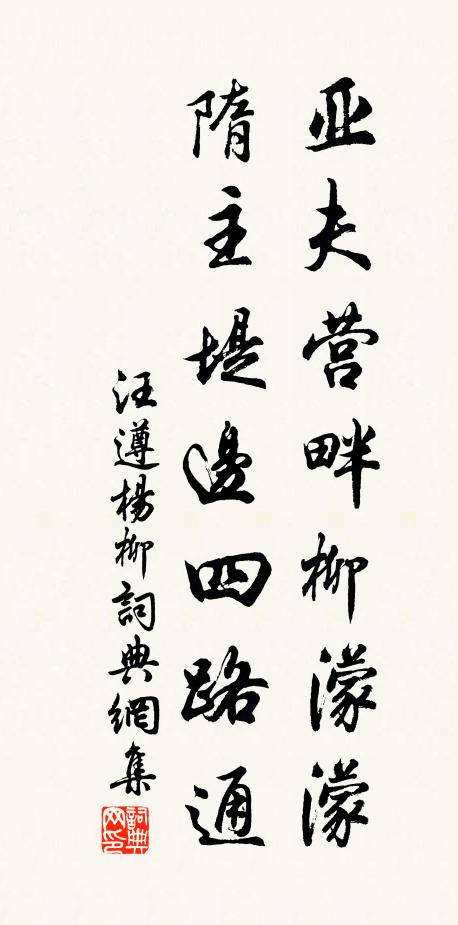 亚夫营畔柳濛濛
隋主堤邊四路通
汪遵楊柳詞典網集
詞典网印